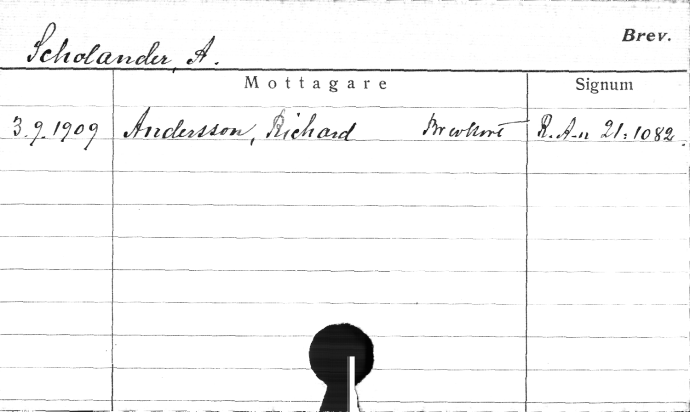 Brev.
Scholander, A.
Mottagare Signum
3.9.1909 Andersson, Richard Brevkort R.An 21:1082.